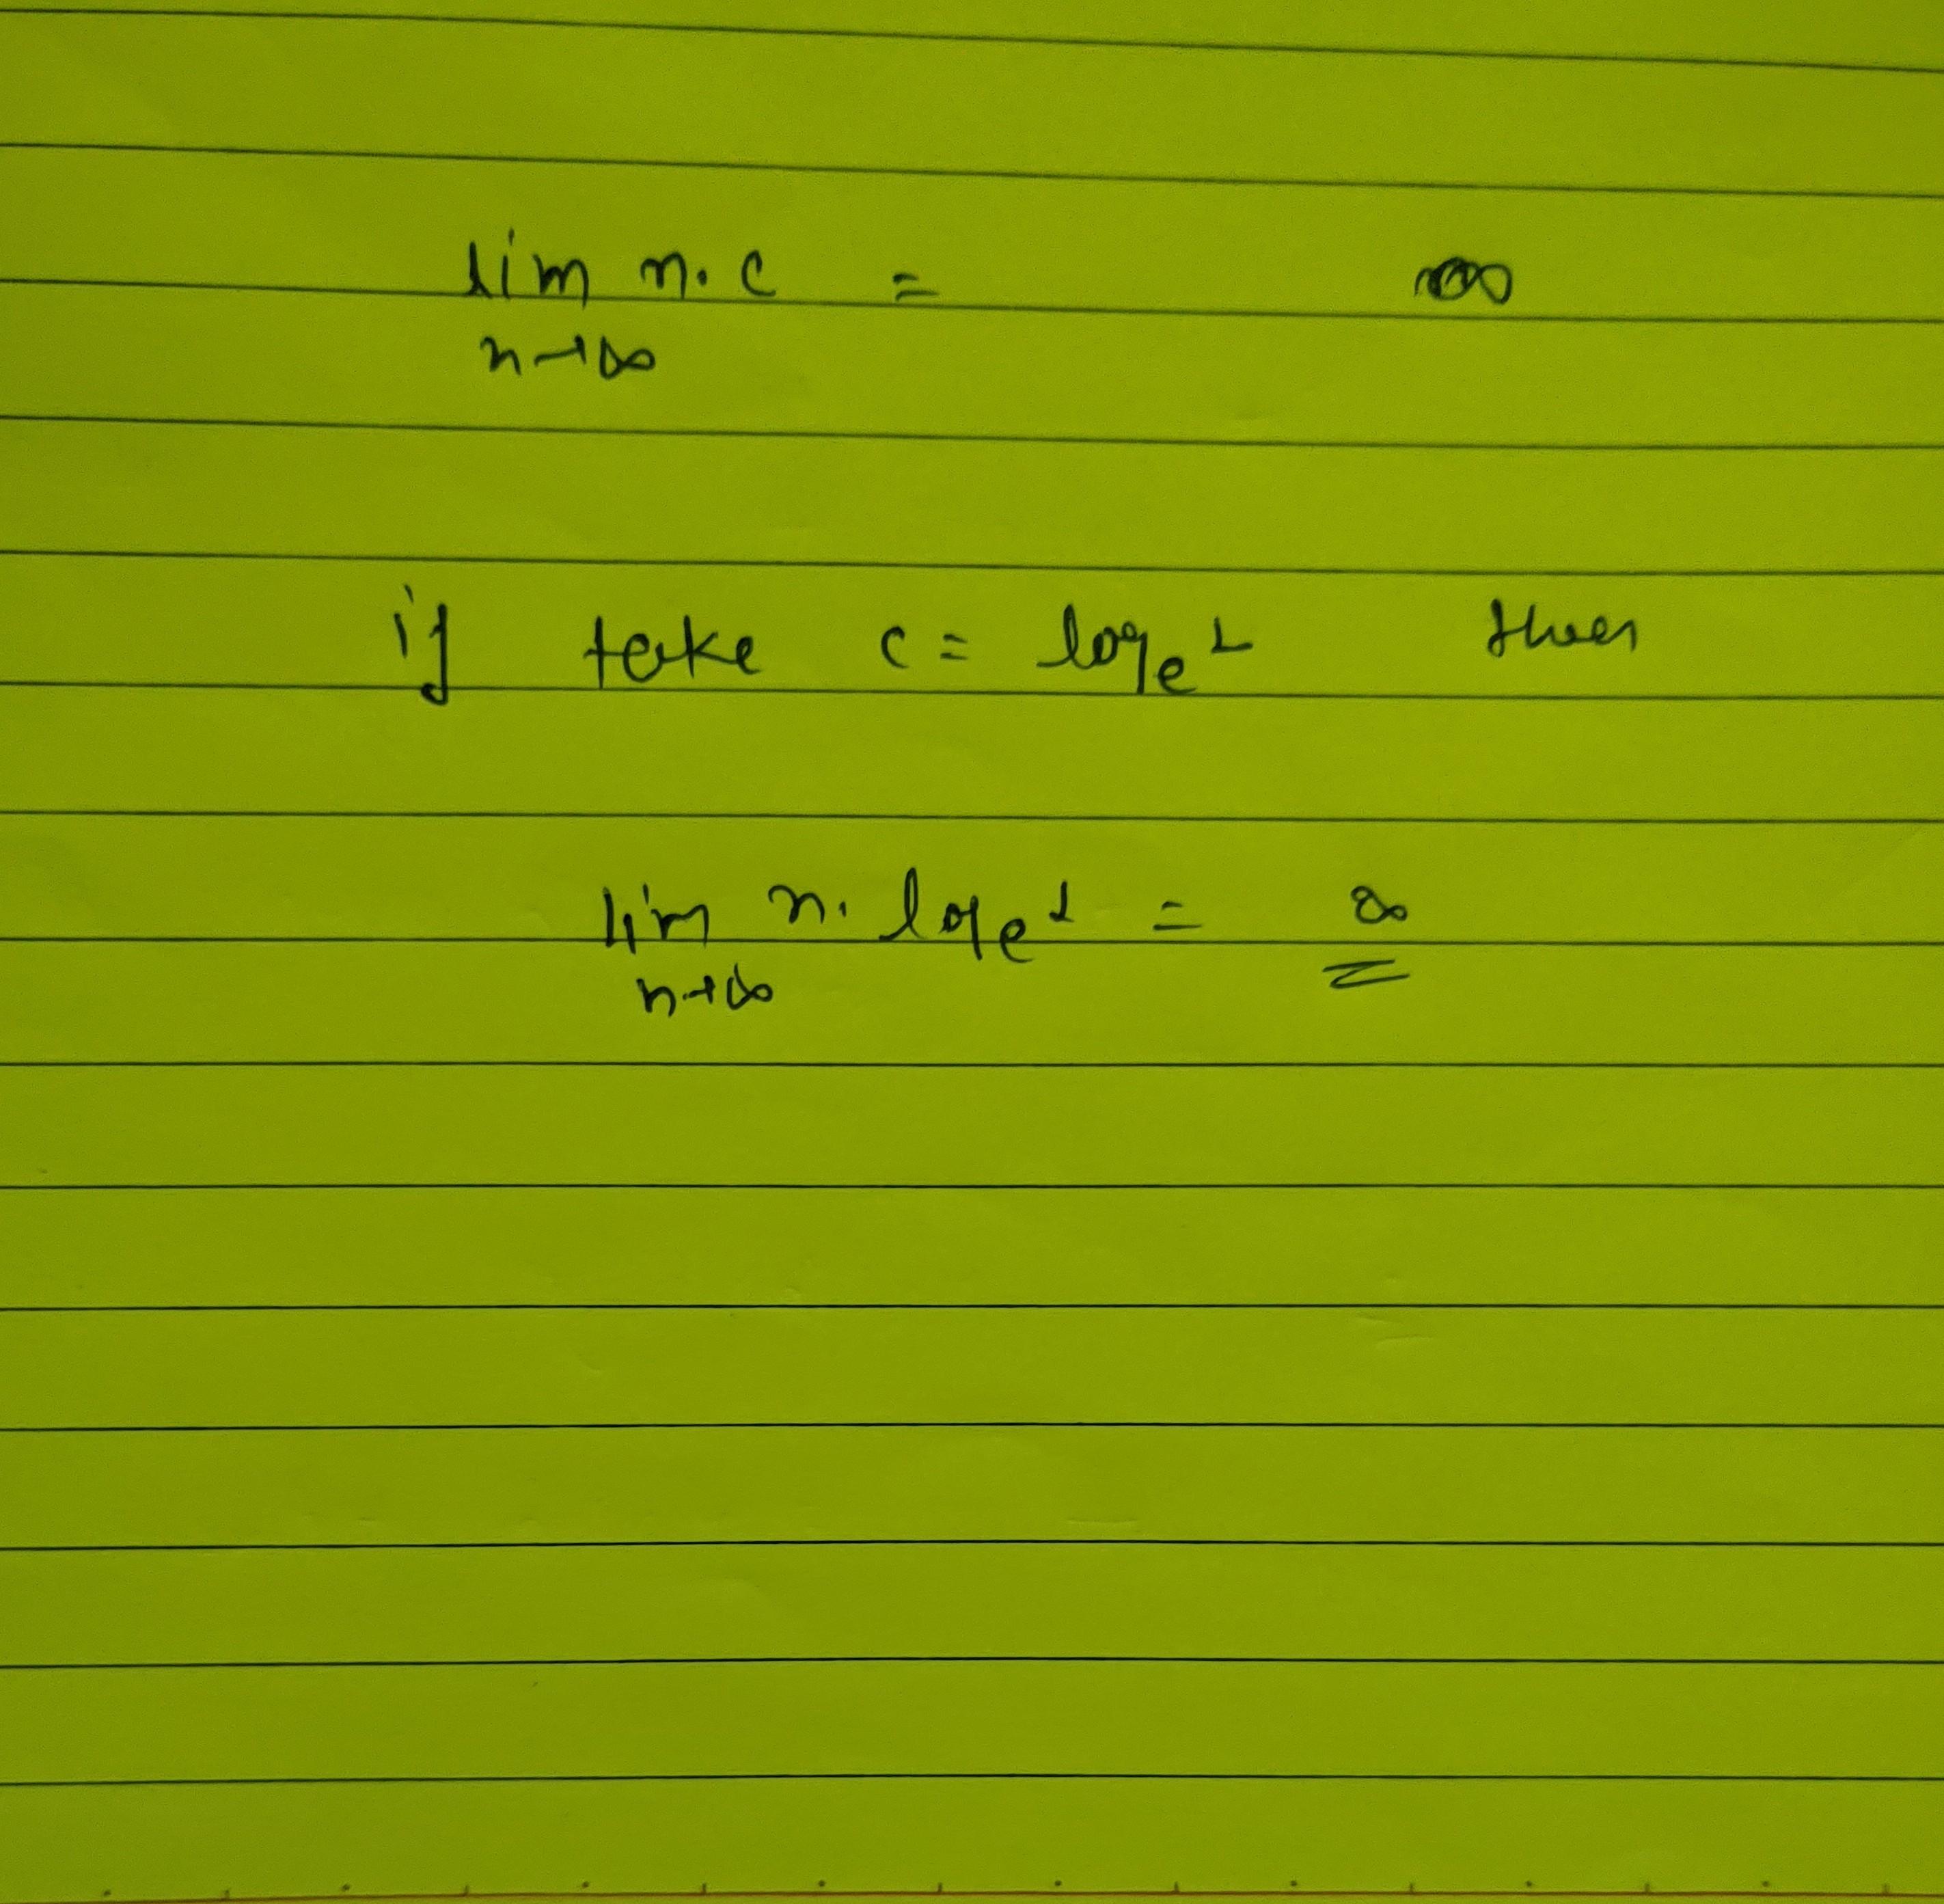 lim n. c = ∞
n→∞
if take c = logₑ 2 then
lim n. logₑ 2 = ∞
n→∞